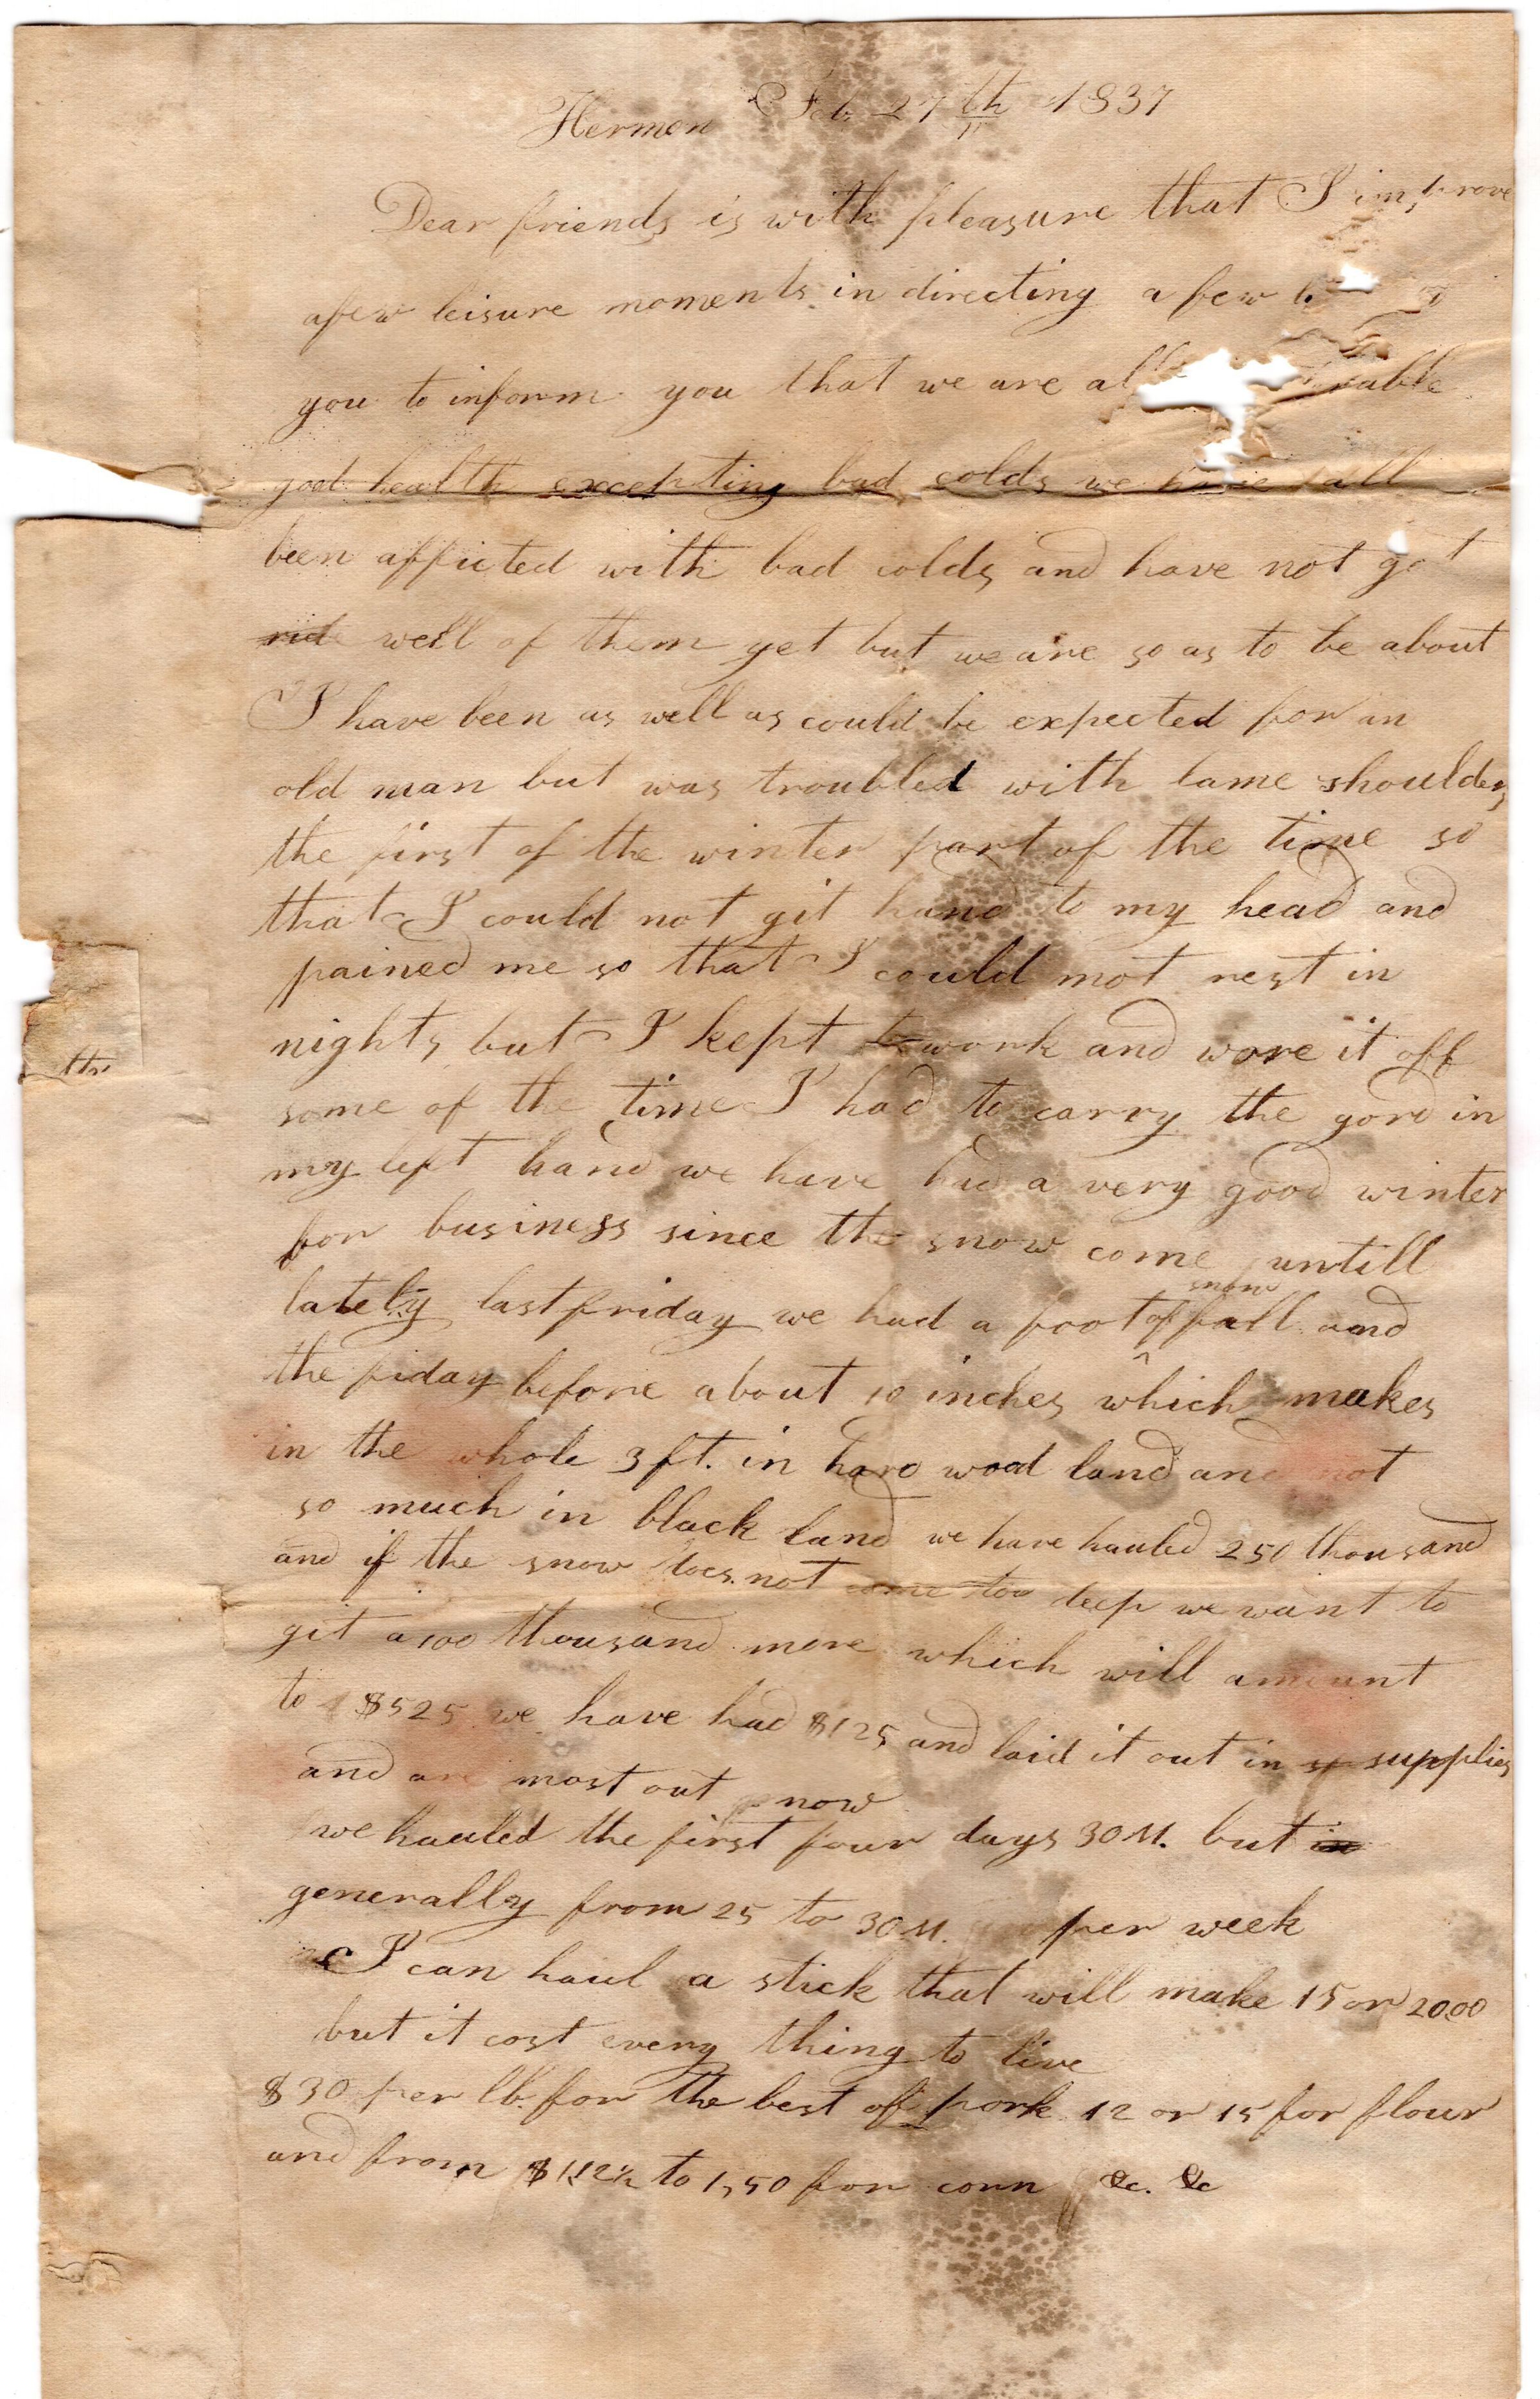 Hermon Feb. 27th 1837
Dear friends is with pleasure that I improve
a few leisure moments in directing a few
you to inform you that we are all
good health excepting bad colds we have all
been afficted with bad colds and have not got
rid well of them yet but we are so as to be about
I have been as well as could be expected for an
old man but was troubled with lame shoulders
the first of the winter part of the time so
that I could not git hand to my head and
pained me so that I could mot rest in
nights but I kept to work and wore it off
some of the time I had to carry the gord in
my left hand we have had a very good winter
for business since the snow come untill
lately last friday we had a foot of snow fall and
the fiday before about 10 inches which makes
in the whole 3 ft. in hard wood land and not
so much in black land we have hauled 250 thousand
and if the snow does not come too deep we want to
git a 100 thousand more which will amount
to $525 we have had $125 and laid it out in s supplies
and are most out now
we hauled the first four days 30 M. but in
generally from 25 to 30 M. per week
I can haul a stick that will make 15 or 2000
but it cost every thing to live
$30 per lb. for the best of pork 12 or 15 for flour
and from $1,12½ to 1,50 for corn &c. &c